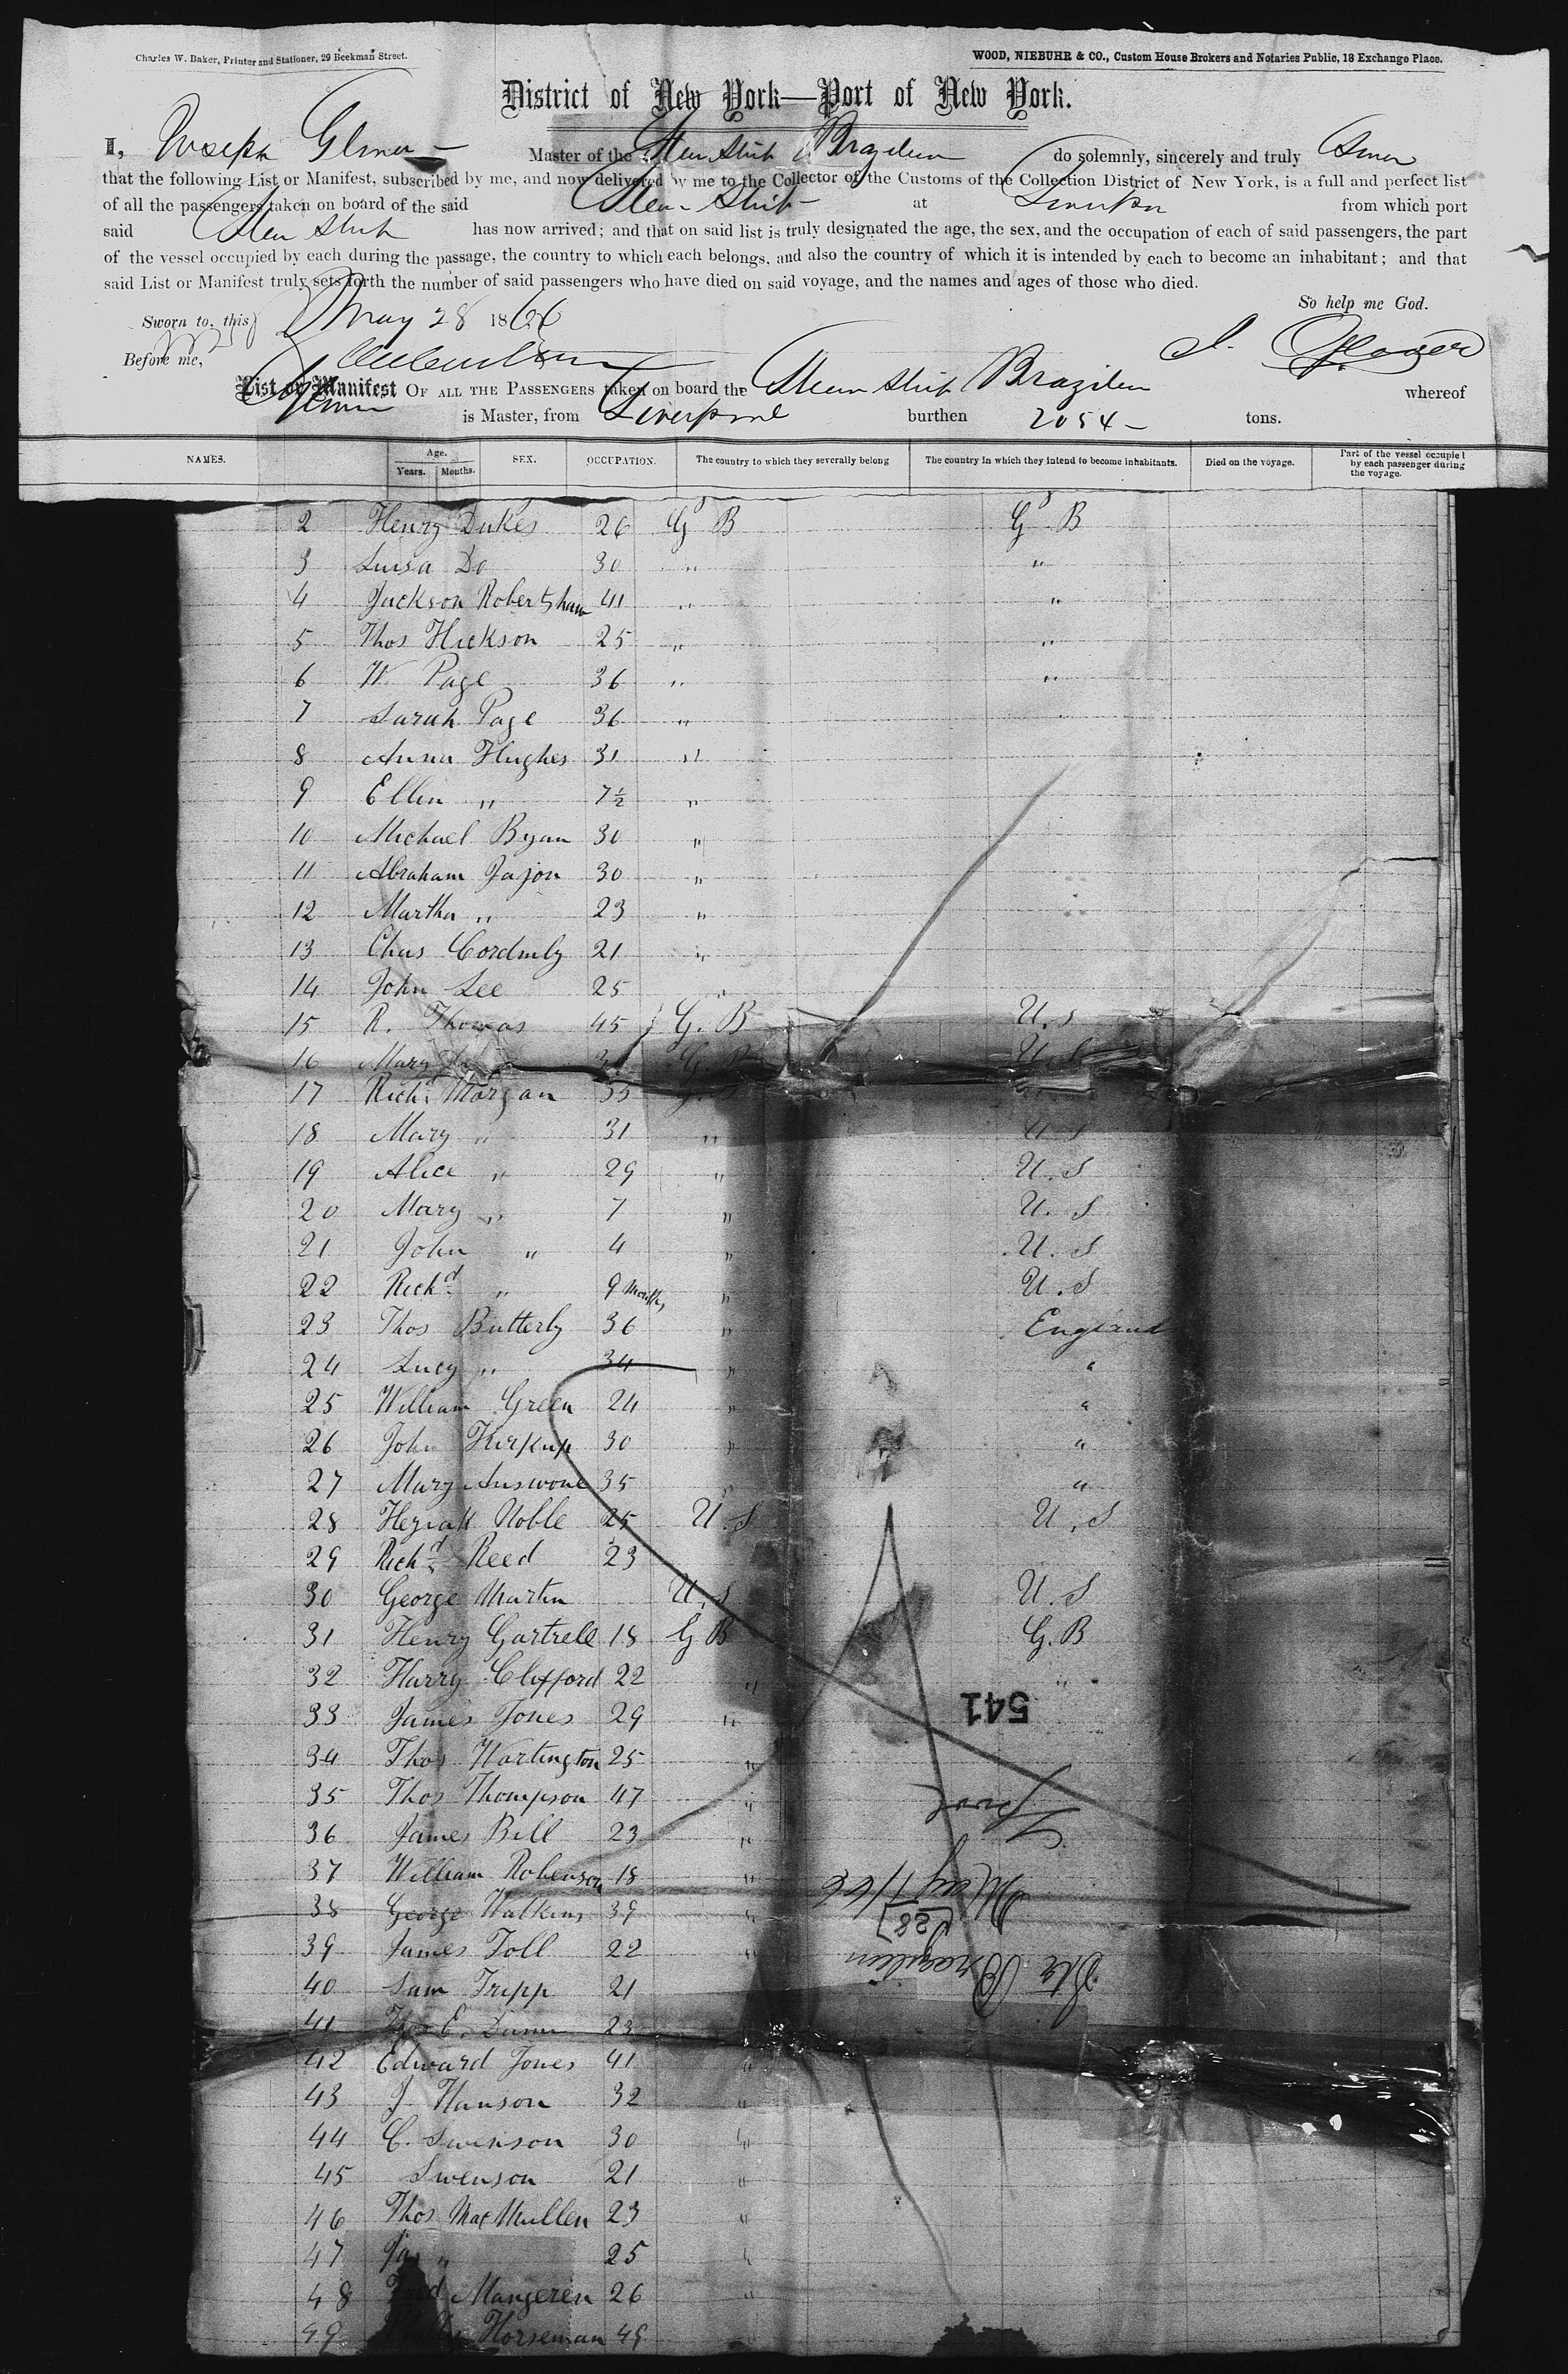 Charles W. Baker, Printer and Stationer, 29 Beekman Street.
WOOD, NIEBUHR & CO., Custom House Brokers and Notaries Public, 18 Exchange Place.
District of New York—Port of New York.
I, Joseph Master of the Steam Ship Brazilian do solemnly, sincerely and truly Swear
that the following List or Manifest, subscribed by me, and now delivered by me to the Collector of the Customs of the Collection District of New York, is a full and perfect list
of all the passengers taken on board of the said Steam Ship at from which port
said Steam Ship has now arrived; and that on said list is truly designated the age, the sex, and the occupation of each of said passengers, the part
of the vessel occupied by each during the passage, the country to which each belongs, and also the country of which it is intended by each to become an inhabitant; and that
said List or Manifest truly sets forth the number of said passengers who have died on said voyage, and the names and ages of those who died.
So help me God.
Sworn to, this May 28 1866
Before me,
List or Manifest OF ALL THE PASSENGERS taken on board the Steam Ship Brazilian whereof
is Master, from Liverpool burthen 2054 tons.
NAMES. Age. Years. Months. SEX. OCCUPATION. The country to which they severally belong The country in which they intend to become inhabitants. Died on the voyage. Part of the vessel occupied by each passenger during the voyage.
2 Henry Dukes 26 G B G B
3 Luisa Do 30 " "
4 Jackson Robertshaw 41 " "
5 Thos Hickson 25 " "
6 W. Page 36 " "
7 Sarah Page 36 " "
8 Anna Hughes 31 "
9 Ellin " 7½ "
10 Michael Ryan 30 "
11 Abraham Jajon 30 "
12 Martha " 23 "
13 Chas 21 "
14 John Lee 25 "
15 R. Thomas 45 G. B U. S
16 Mary G. B U. S
17 Richd Morgan 35 G. B
18 Mary " 31 " U S
19 Alice " 29 " U. S
20 Mary " 7 " U. S
21 John " 4 " U. S
22 Richd " 9 months " U. S
23 Thos Butterly 36 " England
24 Lucy " 34 " "
25 William Green 24 " "
26 John Kirkup 30 " "
27 Mary 35 " "
28 Noble 25 U. S U. S
29 Richd Reed 23
30 George Martin U. S U. S
31 Henry Gartrell 18 G B G. B
32 Harry Clifford 22 " "
33 James Jones 29 "
541
34 Thos Wartington 25 "
35 Thos Thompson 47 "
L'pool
36 James Bill 23 "
37 William Robenson 18 "
May /66
38 George Watkins 39 "
(28)
39 James Toll 22 "
Str Brazilian
40 Sam Tripp 21
41 E. Dunn 23
42 Edward Jones 41 "
43 J. Hanson 32 "
44 C. Swenson 30 "
45 Swenson 21 "
46 Thos MacMullen 23 "
47 Jas " 25 "
48 Mangeren 26 "
49 Horseman 49 "